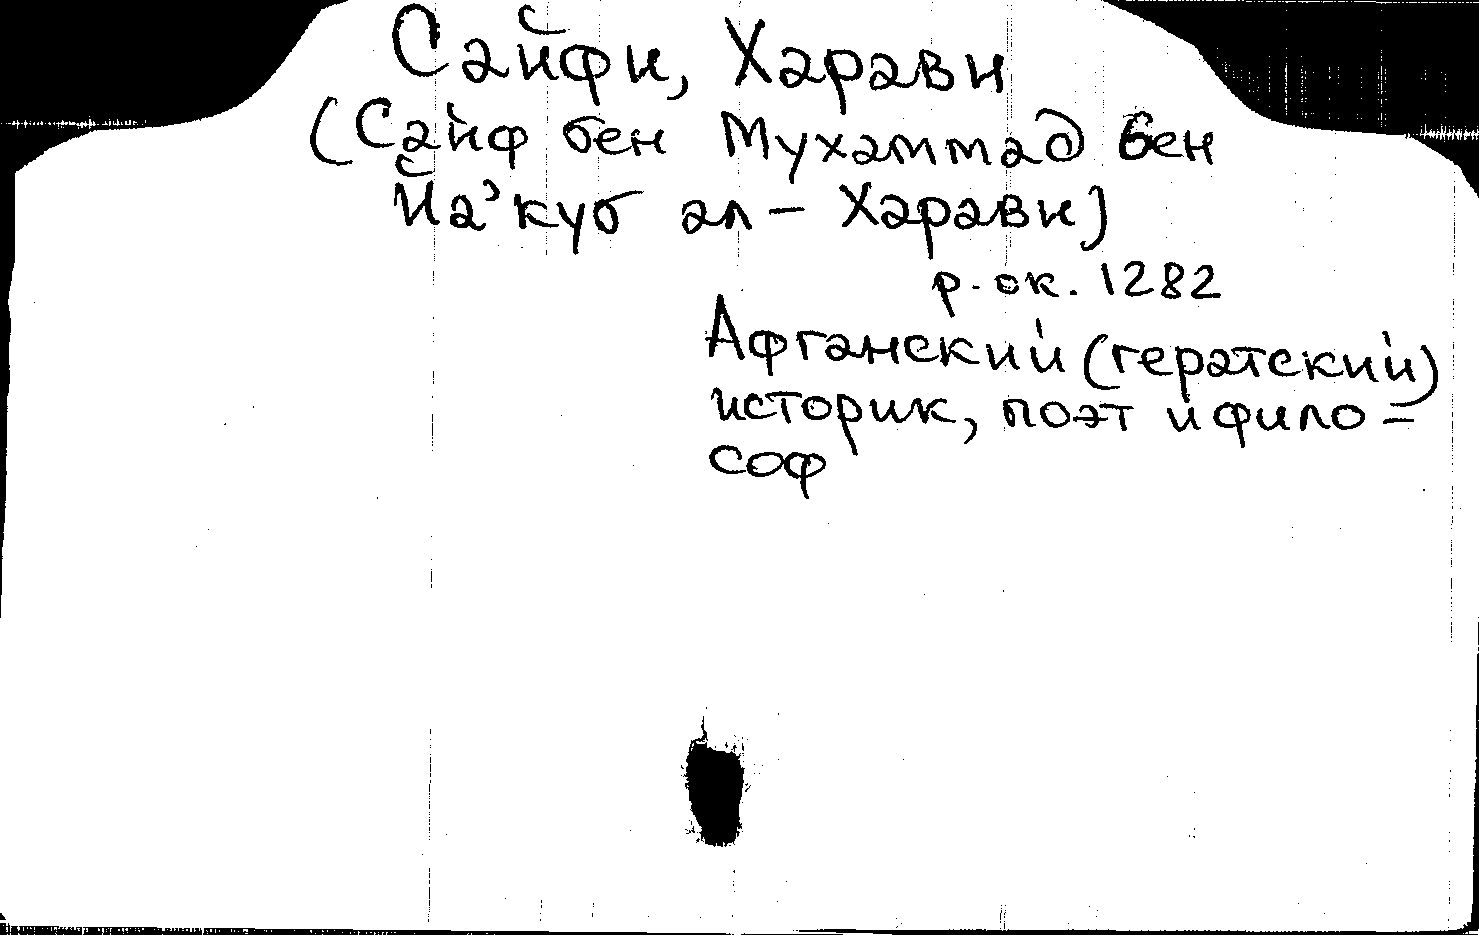 Сайфи, Харави
(Сайф бен Мухаммад бен
Йа'куб ал-Харави)
р. ок. 1282
Афганский (гератский)
историк, поэт и фило-
соф